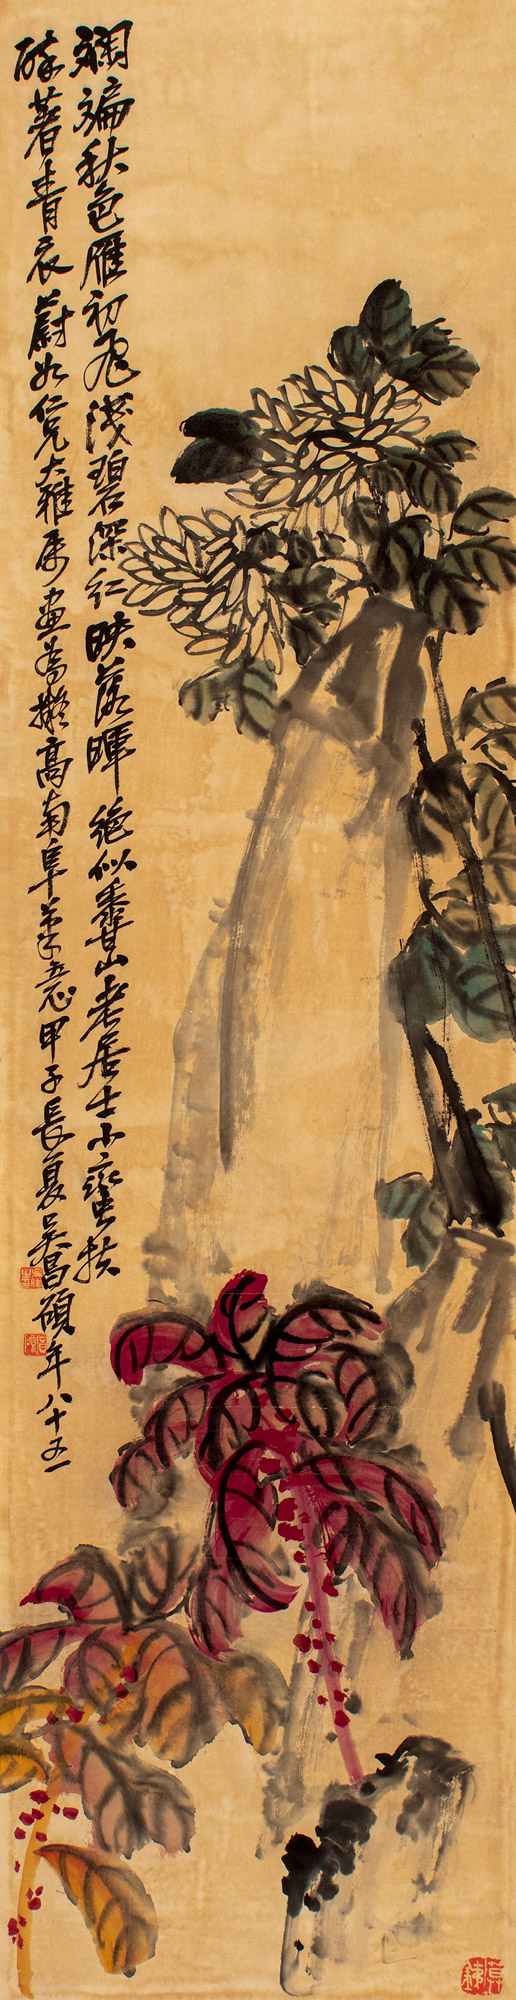 斓斒秋色雁初飛淺碧深紅映落暉絕似香山老居士小蠻扶
醉著青衣蔚如仁兄大雅屬畫為擬高南阜筆意甲子長夏吳昌碩年八十一